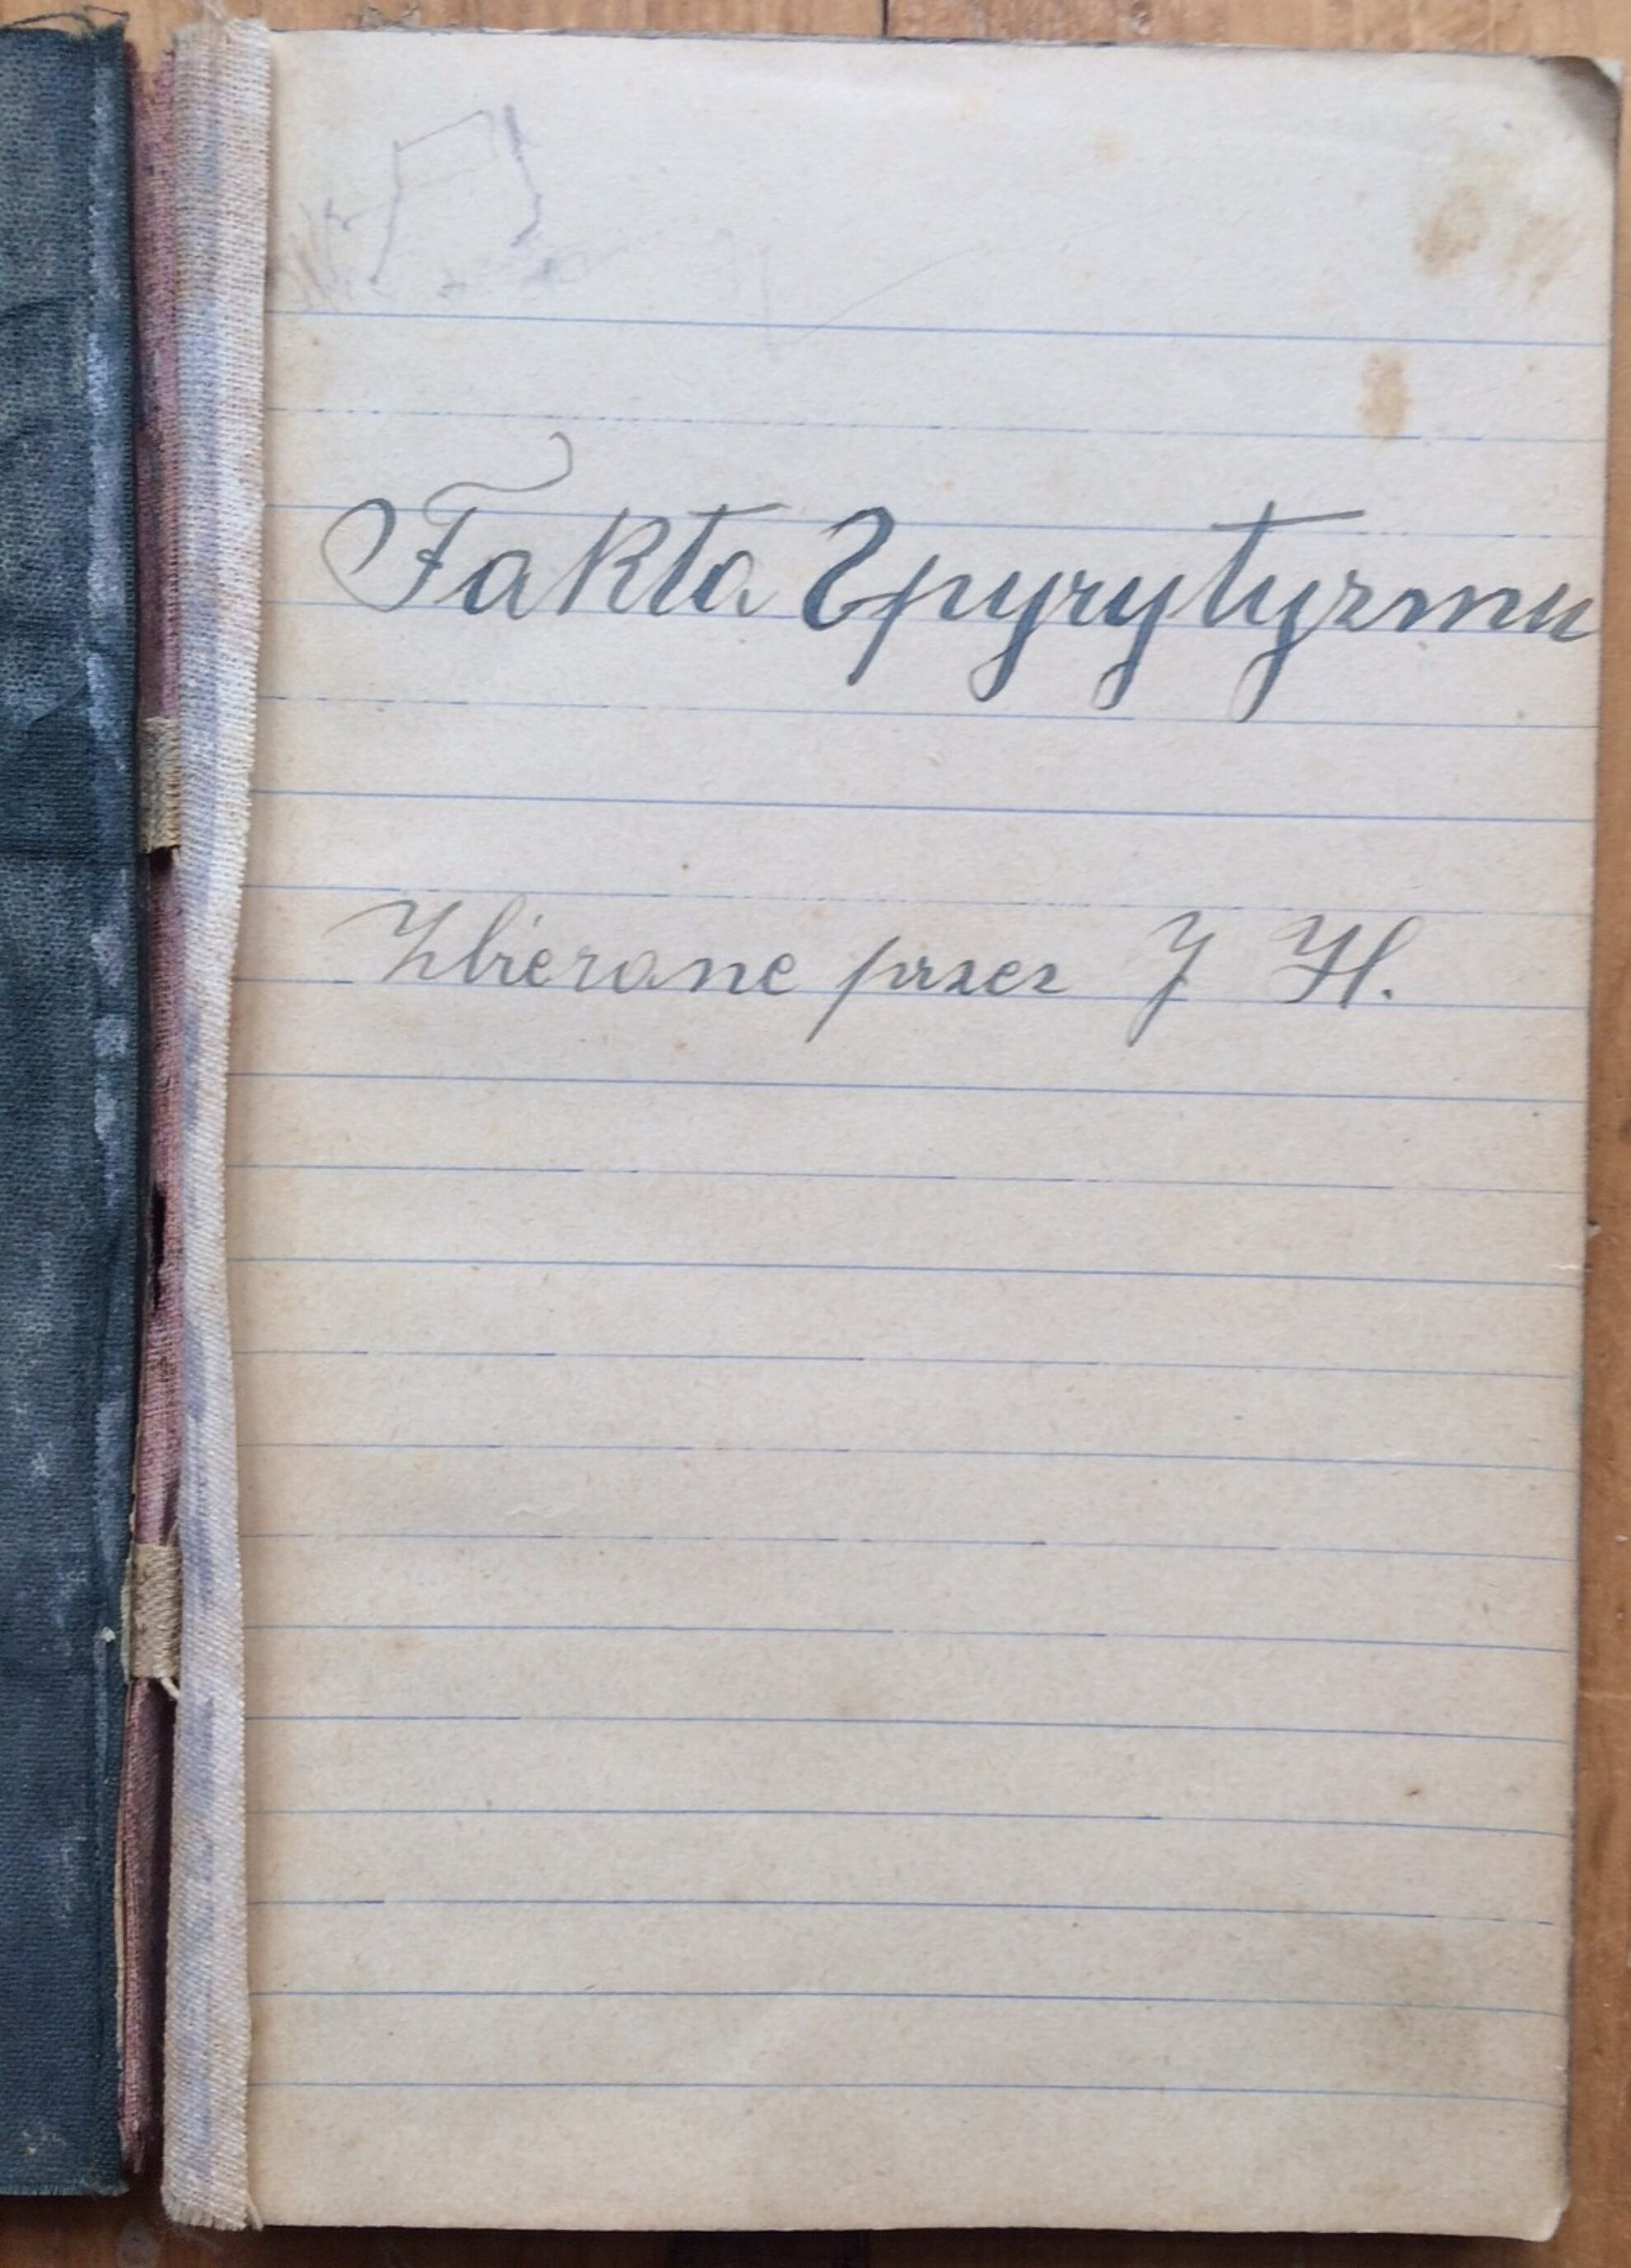 Fakta Spyrytyzmu
Zbierane przez J H.